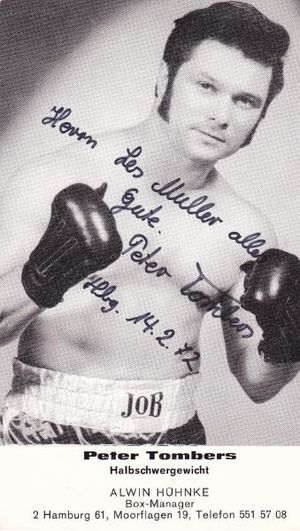 Herrn Les Muller alles
Gute.
Peter Tombers
Hbg. 14.2.72
JOB
Peter Tombers
Halbschwergewicht
ALWIN HÜHNKE
Box-Manager
2 Hamburg 61, Moorflagen 19, Telefon 551 57 08